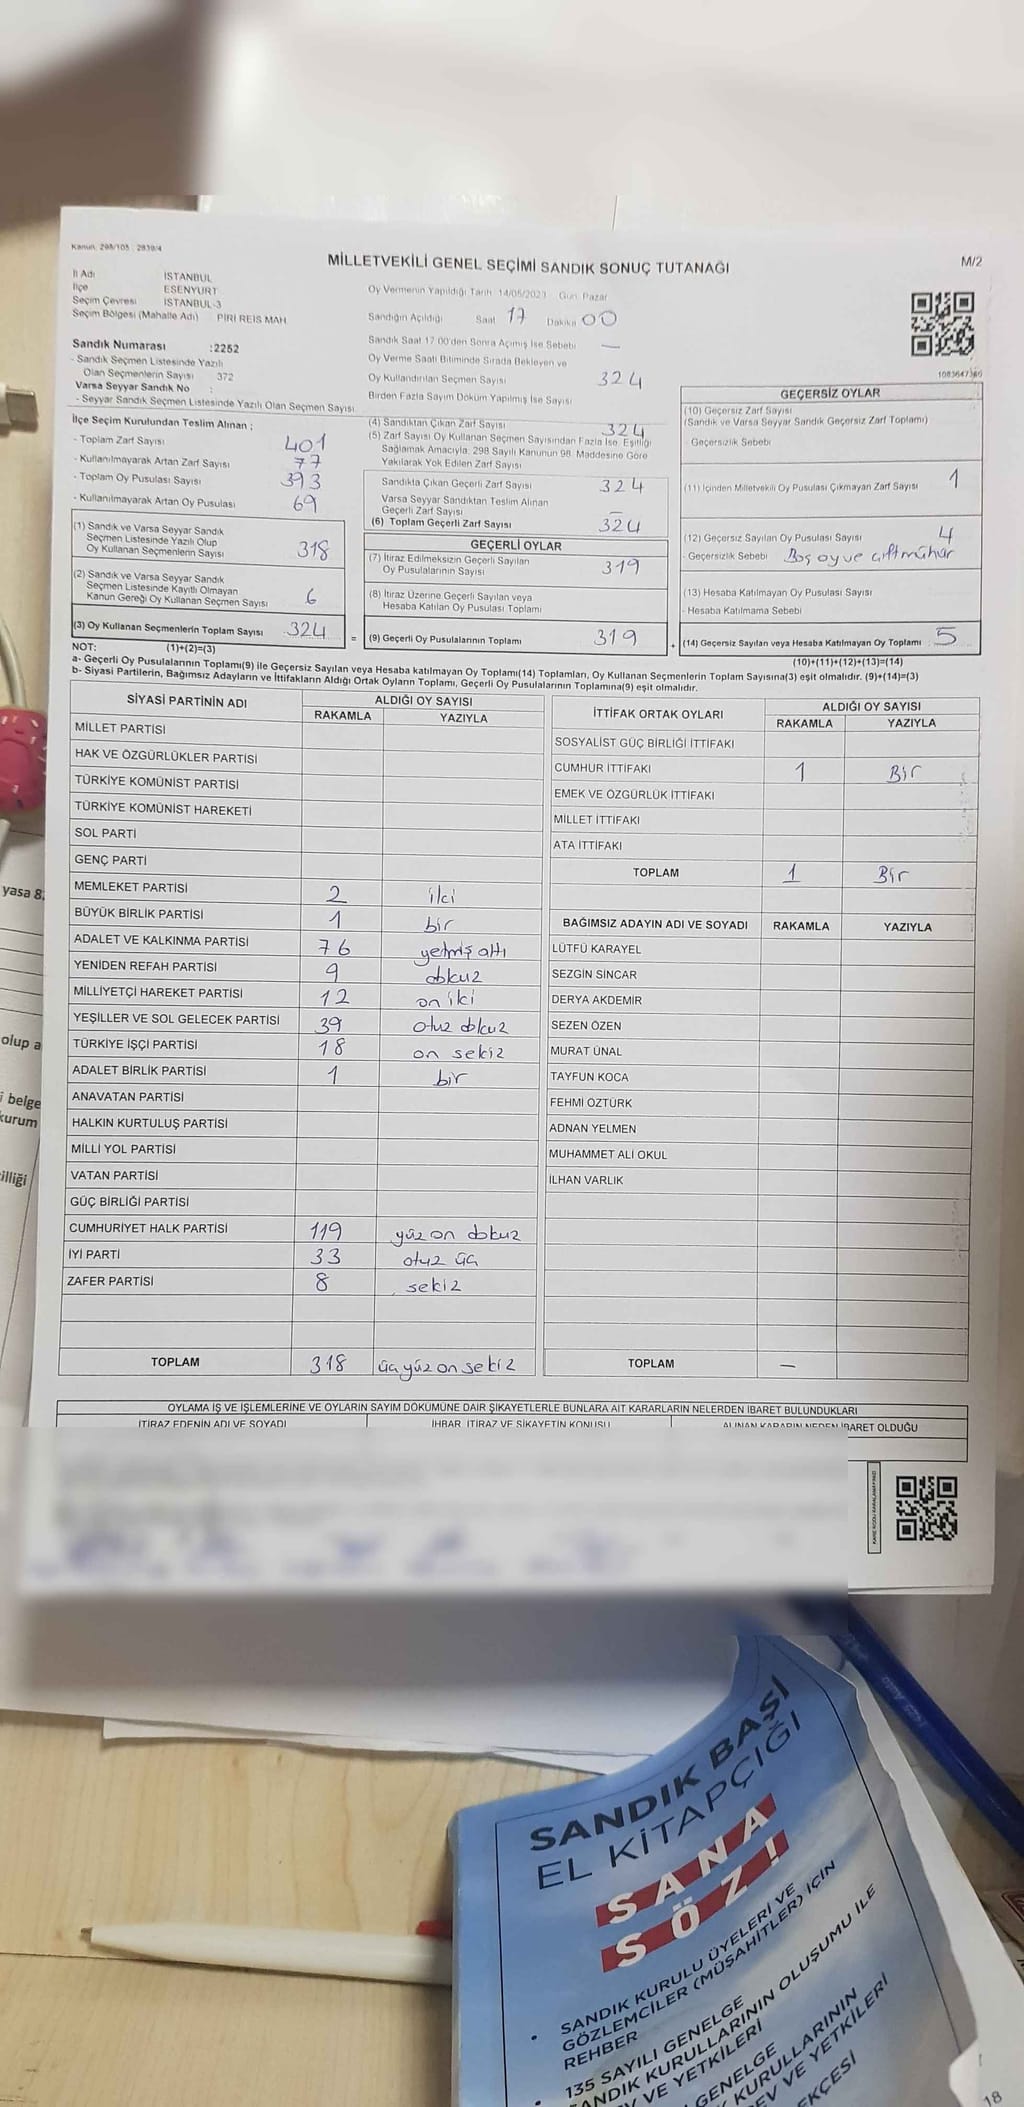 Kanun: 298/105 - 2839/4
MİLLETVEKİLİ GENEL SEÇİMİ SANDIK SONUÇ TUTANAĞI
M/2
İl Adı İSTANBUL
İlçe ESENYURT
Seçim Çevresi İSTANBUL-3
Seçim Bölgesi (Mahalle Adı) PİRİ REİS MAH
Sandık Numarası :2252
- Sandık Seçmen Listesinde Yazılı
Olan Seçmenlerin Sayısı 372
Varsa Seyyar Sandık No :
- Seyyar Sandık Seçmen Listesinde Yazılı Olan Seçmen Sayısı
Oy Vermenin Yapıldığı Tarih 14/05/2023 Gün Pazar
Sandığın Açıldığı Saat 17 Dakika 00
Sandık Saat 17.00'den Sonra Açılmış İse Sebebi —
Oy Verme Saati Bitiminde Sırada Bekleyen ve
Oy Kullandırılan Seçmen Sayısı 324
Birden Fazla Sayım Döküm Yapılmış İse Sayısı
1083647360
İlçe Seçim Kurulundan Teslim Alınan ;
- Toplam Zarf Sayısı 401
- Kullanılmayarak Artan Zarf Sayısı 77
- Toplam Oy Pusulası Sayısı 393
- Kullanılmayarak Artan Oy Pusulası 69
(1) Sandık ve Varsa Seyyar Sandık
Seçmen Listesinde Yazılı Olup
Oy Kullanan Seçmenlerin Sayısı 318
(2) Sandık ve Varsa Seyyar Sandık
Seçmen Listesinde Kayıtlı Olmayan
Kanun Gereği Oy Kullanan Seçmen Sayısı 6
(3) Oy Kullanan Seçmenlerin Toplam Sayısı 324
(4) Sandıktan Çıkan Zarf Sayısı 324
(5) Zarf Sayısı Oy Kullanan Seçmen Sayısından Fazla İse, Eşitliği
Sağlamak Amacıyla, 298 Sayılı Kanunun 98. Maddesine Göre
Yakılarak Yok Edilen Zarf Sayısı
Sandıkta Çıkan Geçerli Zarf Sayısı 324
Varsa Seyyar Sandıktan Teslim Alınan
Geçerli Zarf Sayısı —
(6) Toplam Geçerli Zarf Sayısı 324
GEÇERLİ OYLAR
(7) İtiraz Edilmeksizin Geçerli Sayılan
Oy Pusulalarının Sayısı 319
(8) İtiraz Üzerine Geçerli Sayılan veya
Hesaba Katılan Oy Pusulası Toplamı
= (9) Geçerli Oy Pusulalarının Toplamı 319
GEÇERSİZ OYLAR
(10) Geçersiz Zarf Sayısı
(Sandık ve Varsa Seyyar Sandık Geçersiz Zarf Toplamı)
- Geçersizlik Sebebi
(11) İçinden Milletvekili Oy Pusulası Çıkmayan Zarf Sayısı 1
(12) Geçersiz Sayılan Oy Pusulası Sayısı 4
- Geçersizlik Sebebi Boş oy ve çift mühür
(13) Hesaba Katılmayan Oy Pusulası Sayısı
- Hesaba Katılmama Sebebi
+ (14) Geçersiz Sayılan veya Hesaba Katılmayan Oy Toplamı 5
NOT: (1)+(2)=(3)
(10)+(11)+(12)+(13)=(14)
a- Geçerli Oy Pusulalarının Toplamı(9) ile Geçersiz Sayılan veya Hesaba katılmayan Oy Toplamı(14) Toplamları, Oy Kullanan Seçmenlerin Toplam Sayısına(3) eşit olmalıdır. (9)+(14)=(3)
b- Siyasi Partilerin, Bağımsız Adayların ve İttifakların Aldığı Ortak Oyların Toplamı, Geçerli Oy Pusulalarının Toplamına(9) eşit olmalıdır.
SİYASİ PARTİNİN ADI ALDIĞI OY SAYISI
RAKAMLA YAZIYLA
MİLLET PARTİSİ
HAK VE ÖZGÜRLÜKLER PARTİSİ
TÜRKİYE KOMÜNİST PARTİSİ
TÜRKİYE KOMÜNİST HAREKETİ
SOL PARTİ
GENÇ PARTİ
MEMLEKET PARTİSİ 2 iki
BÜYÜK BİRLİK PARTİSİ 1 bir
ADALET VE KALKINMA PARTİSİ 76 yetmiş altı
YENİDEN REFAH PARTİSİ 9 dokuz
MİLLİYETÇİ HAREKET PARTİSİ 12 on iki
YEŞİLLER VE SOL GELECEK PARTİSİ 39 otuz dokuz
TÜRKİYE İŞÇİ PARTİSİ 18 on sekiz
ADALET BİRLİK PARTİSİ 1 bir
ANAVATAN PARTİSİ
HALKIN KURTULUŞ PARTİSİ
MİLLİ YOL PARTİSİ
VATAN PARTİSİ
GÜÇ BİRLİĞİ PARTİSİ
CUMHURİYET HALK PARTİSİ 119 yüz on dokuz
İYİ PARTİ 33 otuz üç
ZAFER PARTİSİ 8 sekiz
TOPLAM 318 üçyüz on sekiz
İTTİFAK ORTAK OYLARI ALDIĞI OY SAYISI
RAKAMLA YAZIYLA
SOSYALİST GÜÇ BİRLİĞİ İTTİFAKI
CUMHUR İTTİFAKI 1 Bir
EMEK VE ÖZGÜRLÜK İTTİFAKI
MİLLET İTTİFAKI
ATA İTTİFAKI
TOPLAM 1 Bir
BAĞIMSIZ ADAYIN ADI VE SOYADI RAKAMLA YAZIYLA
LÜTFÜ KARAYEL
SEZGİN SİNCAR
DERYA AKDEMİR
SEZEN ÖZEN
MURAT ÜNAL
TAYFUN KOCA
FEHMİ ÖZTÜRK
ADNAN YELMEN
MUHAMMET ALİ OKUL
İLHAN VARLIK
TOPLAM —
OYLAMA İŞ VE İŞLEMLERİNE VE OYLARIN SAYIM DÖKÜMÜNE DAİR ŞİKAYETLERLE BUNLARA AİT KARARLARIN NELERDEN İBARET BULUNDUKLARI
İTİRAZ EDENİN ADI VE SOYADI İHBAR, İTİRAZ VE ŞİKAYETİN KONUSU ALINAN KARARIN NEDEN İBARET OLDUĞU
yasa 8.
olup a
i belge
kurum
illiği
SANDIK BAŞI
EL KİTAPÇIĞI
SANA
SÖZ!
• SANDIK KURULU ÜYELERİ VE
GÖZLEMCİLER (MÜŞAHİTLER) İÇİN
REHBER
• 135 SAYILI GENELGE
SANDIK KURULLARININ OLUŞUMU İLE
VE YETKİLERİ
GENELGE
KURULLARININ
EV VE YETKİLERİ
18